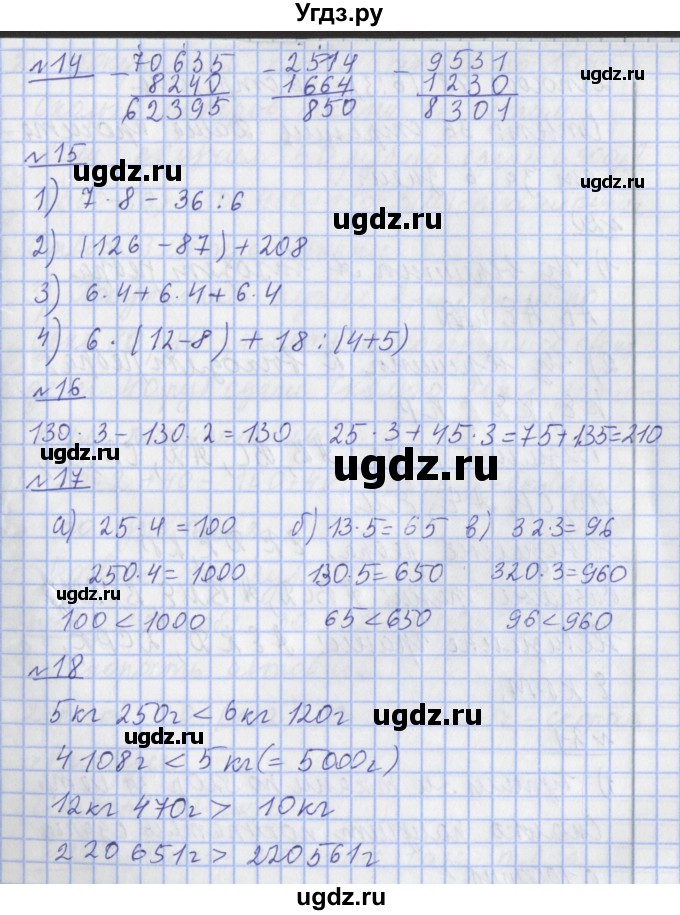 Угдз.ру
№14 - 70635 - 2514 - 9531
8240 1664 1230
62395 850 8301
№15
ugdz.ru ugdz.ru
1) 7·8 - 36 : 6
ugdz.ru
2) (126 - 87) + 208
3) 6·4 + 6·4 + 6·4
4) 6 · (12-8) + 18 : (4+5)
№16
130·3 - 130·2 = 130 25·3 + 45·3 = 75 + 135 = 210
ugdz.ru ugdz.ru
№17
а) 25·4 = 100 б) 13·5 = 65 в) 32·3 = 96
250·4 = 1000 130·5 = 650 320·3 = 960
ugdz.ru
100 < 1000 65 < 650 96 < 960
№18
5кг 250г < 6кг 120г
ugdz.ru ugdz.ru
4108г < 5кг (= 5000г)
12кг 470г > 10кг
220651г > 220561г
ugdz.ru